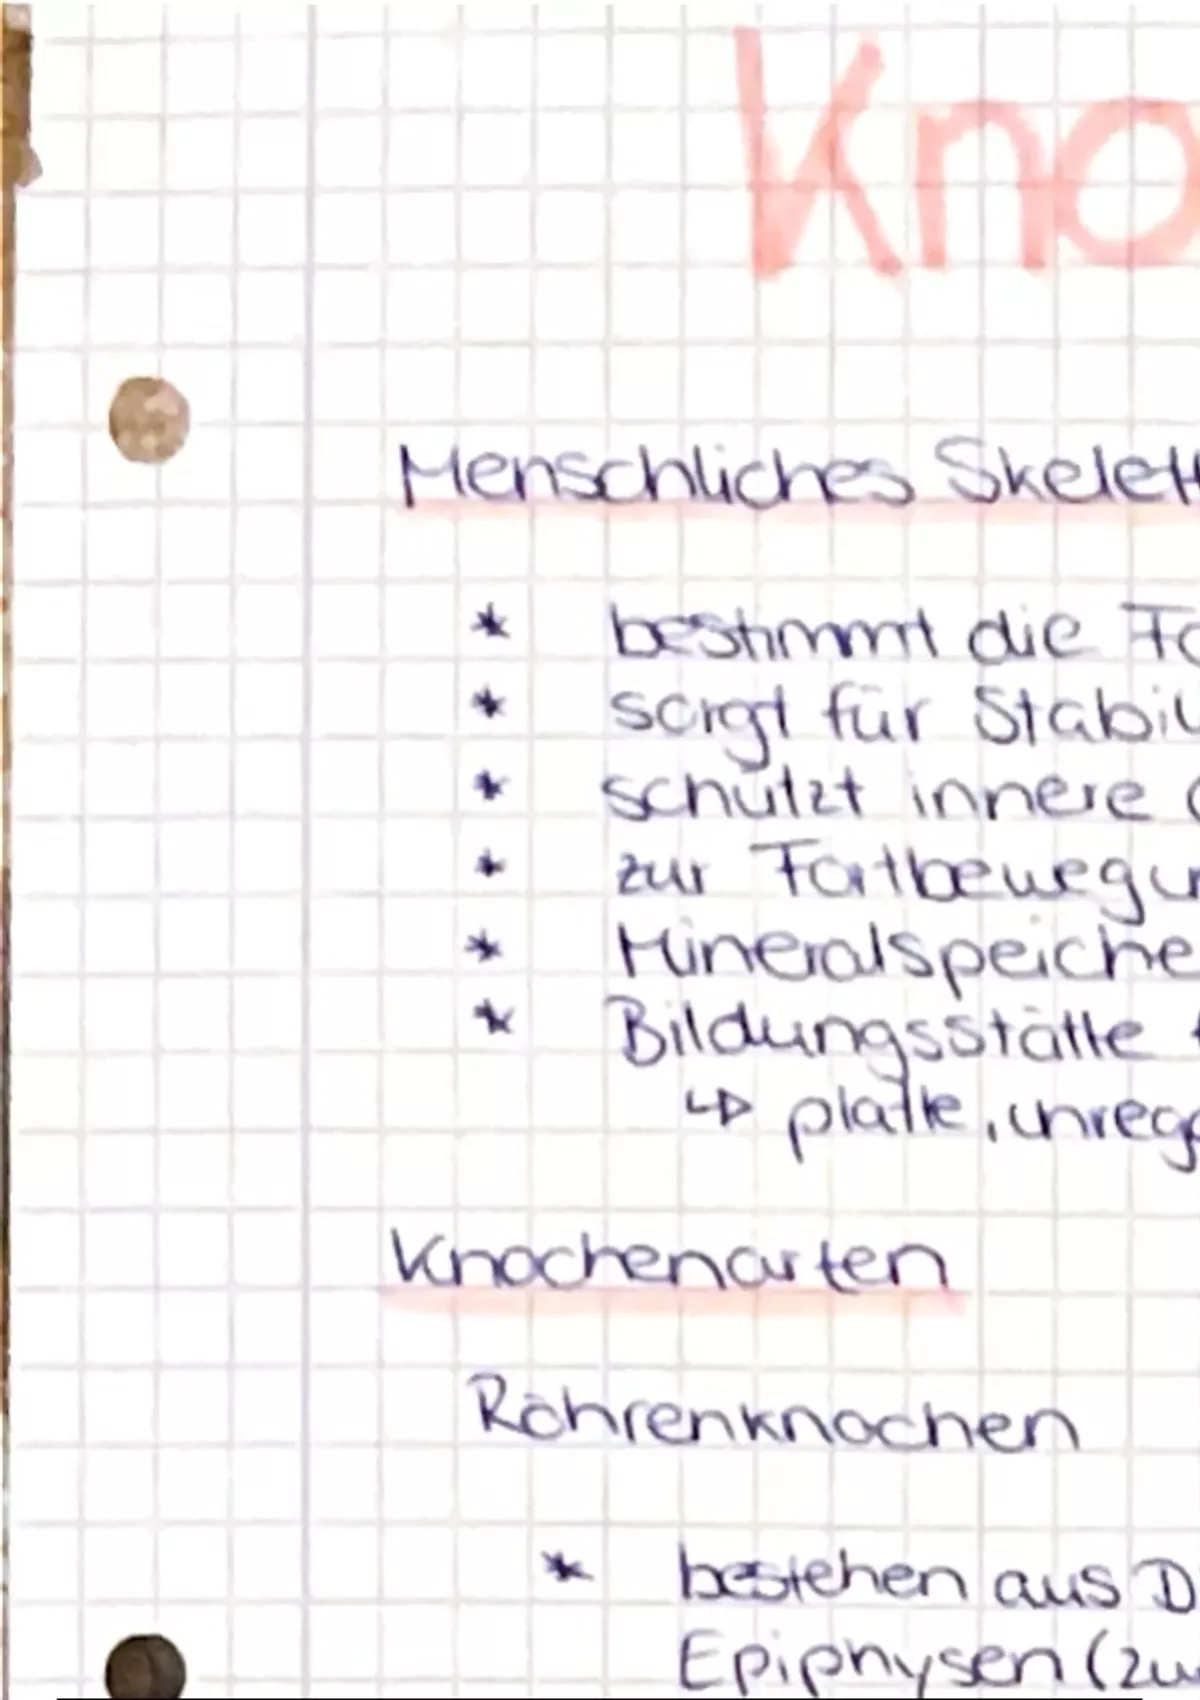 Kno
Menschliches Skelett
* bestimmt die Fo
* sorgt für Stabil
* schützt innere
* zur Fortbewegun
* Mineralspeiche
* Bildungsstätte
↳ platte, unreg
Knochenarten
Röhrenknochen
* bestehen aus D
Epiphysen (zw